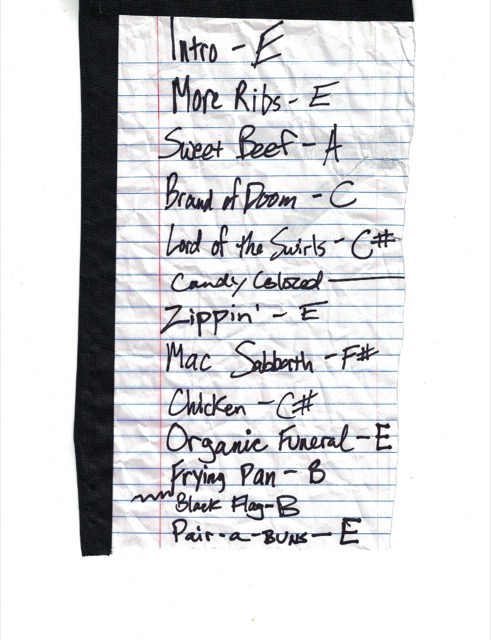 Intro - E
More Ribs - E
Sweet Beef - A
Brand of Doom - C
Lord of the Swirls - C#
Candy Colored —
Zippin' - E
Mac Sabbath - F#
Chicken - C#
Organic Funeral - E
Frying Pan - B
Black Flag - B
Pair-a-BUNS - E